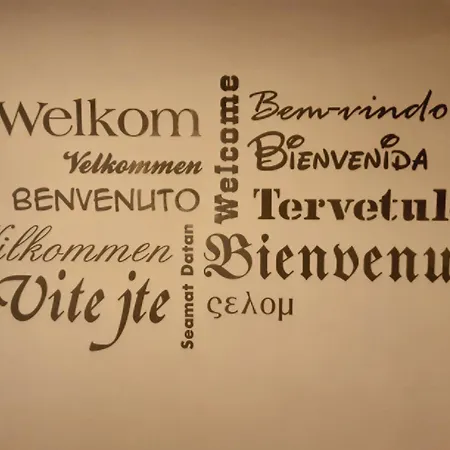 Welkom
Velkommen
BENVENUTO
ilkommen
Vite jte
Seamat Datan
Welcome
Bem-vindo
BIENVENIDA
Tervetul
Bienvenu
ςελομ